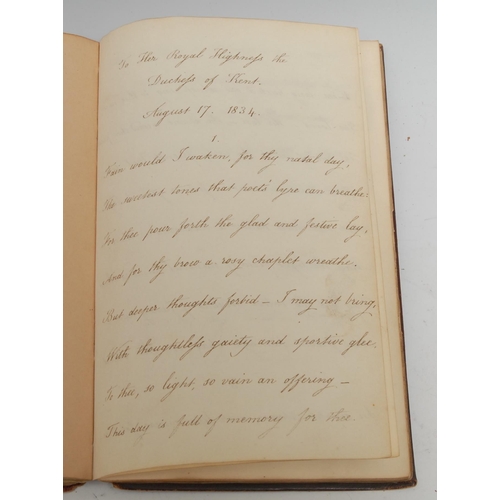 To Her Royal Highness the
Duchess of Kent.
August 17. 1834.
1.
Fain would I waken, for thy natal day,
The sweetest tones that poet's lyre can breathe.
For thee pour forth the glad and festive lay,
And for thy brow a rosy chaplet wreathe.
But deeper thoughts forbid – I may not bring,
With thoughtless gaiety and sportive glee.
To thee, so light, so vain an offering –
This day is full of memory for thee.